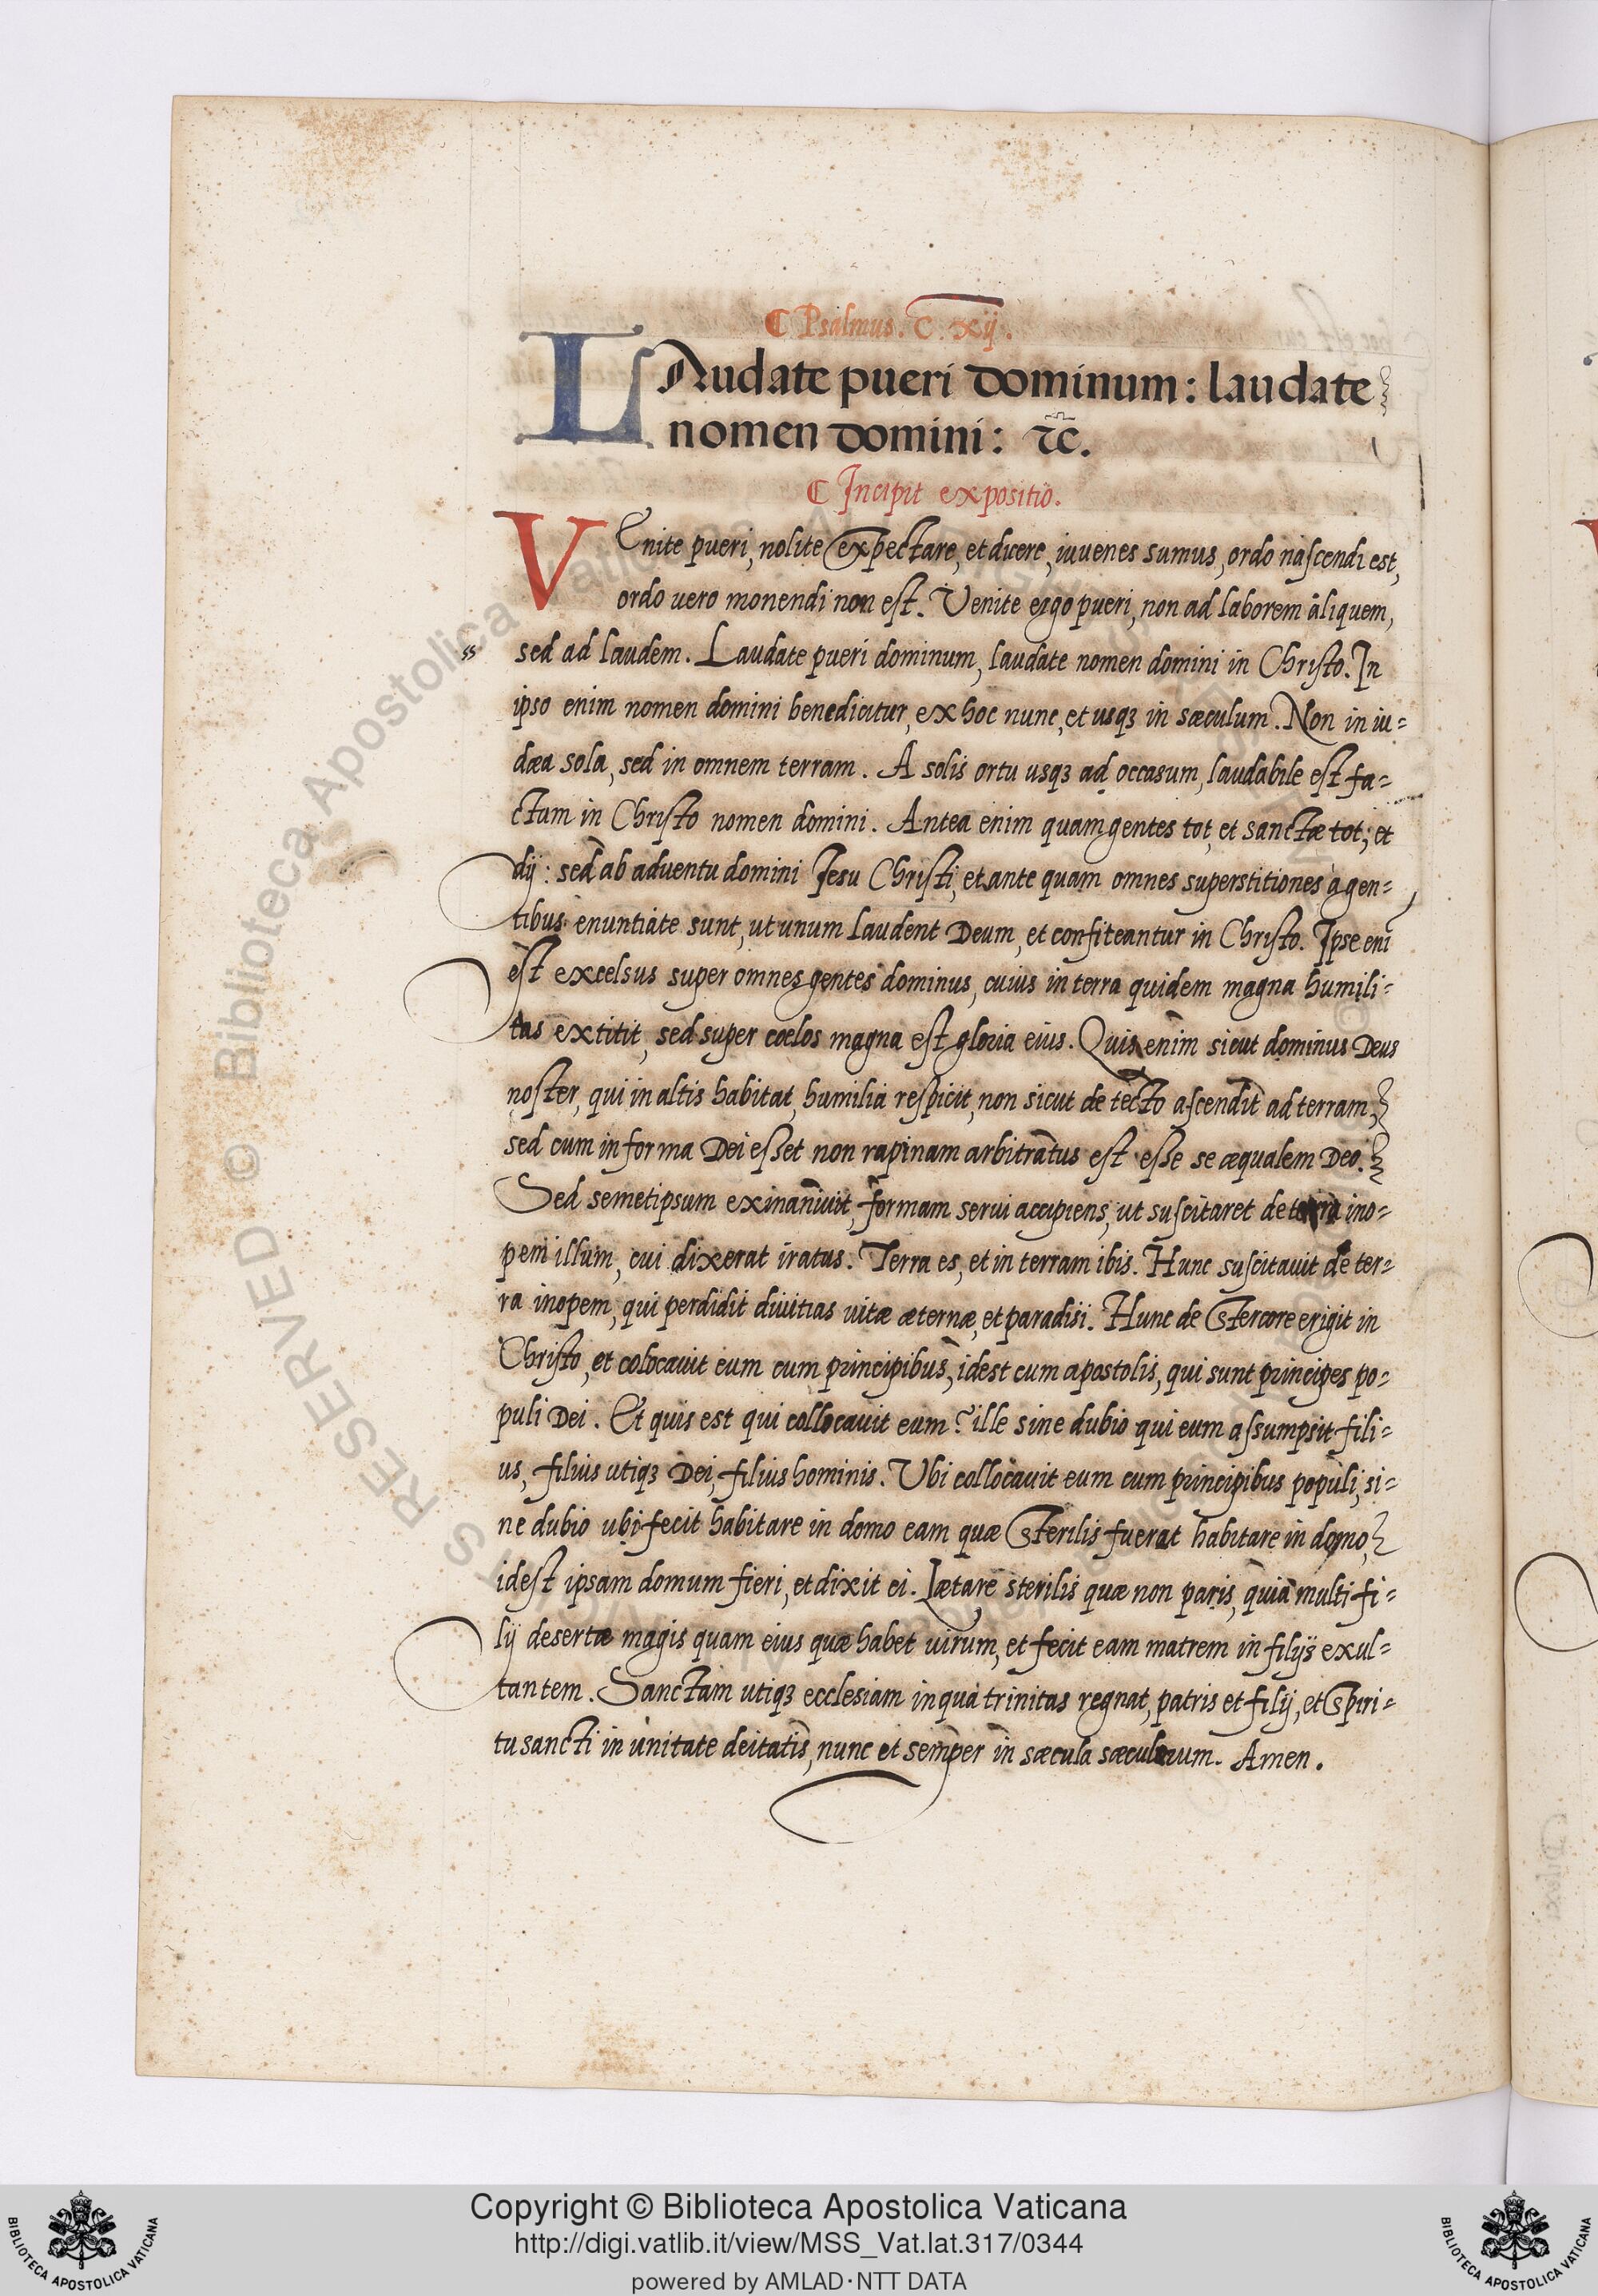 ¶ Psalmus. C. xij.
LAudate pueri Dominum: laudate
nomen Domini: &c̄.
¶ Incipit expositio.
VEnite pueri, nolite expectare, et dicere, iuuenes sumus, ordo nascendi est,
ordo uero monendi non est. Venite ergo pueri, non ad laborem aliquem,
ss sed ad laudem. Laudate pueri dominum, laudate nomen domini in Christo. In
ipso enim nomen domini benedicitur, ex hoc nunc, et usqȝ in sæculum. Non in iu=
dæa sola, sed in omnem terram. A solis ortu usqȝ ad occasum, laudabile est fa=
ctam in Christo nomen domini. Antea enim quam gentes tot, et sanctæ tot; et
dij: sed ab aduentu domini Jesu Christi, et ante quam omnes superstitiones a gen=
tibus enuntiate sunt, ut unum laudent Deum, et confiteantur in Christo. Ipse enī
est excelsus super omnes gentes dominus, cuius in terra quidem magna humili=
tas extitit, sed super cœlos magna est gloria eius. Quis enim sicut dominus Deus
noster, qui in altis habitat, humilia respicit, non sicut de tecto ascendit ad terram,
sed cum in forma Dei esset non rapinam arbitratus est esse se æqualem Deo.
Sed semetipsum exinaniuit, formam serui accipiens, ut suscitaret de terra ino=
pem illum, cui dixerat iratus. Terra es, et in terram ibis. Hunc suscitauit de ter=
ra inopem, qui perdidit diuitias uitæ æternæ, et paradisi. Hunc de stercore erigit in
Christo, et colocauit eum cum principibus, idest cum apostolis, qui sunt principes po=
puli Dei. Et quis est qui collocauit eum? ille sine dubio qui eum assumpsit fili=
us, filius utiqȝ Dei, filius hominis. Vbi collocauit eum cum principibus populi, si=
ne dubio ubi fecit habitare in domo eam quæ sterilis fuerat habitare in domo,
idest ipsam domum fieri, et dixit ei. Lætare sterilis quæ non paris, quia multi fi=
lij desertæ magis quam eius quæ habet uirum, et fecit eam matrem in filijs exul=
tantem. Sanctam utiqȝ ecclesiam in qua trinitas regnat, patris et filij, et spiri=
tu sancti in unitate deitatis, nunc et semper in sæcula sæculorum. Amen.
Copyright © Biblioteca Apostolica Vaticana
http://digi.vatlib.it/view/MSS_Vat.lat.317/0344
powered by AMLAD·NTT DATA
BIBLIOTECA APOSTOLICA VATICANA
BIBLIOTECA APOSTOLICA VATICANA